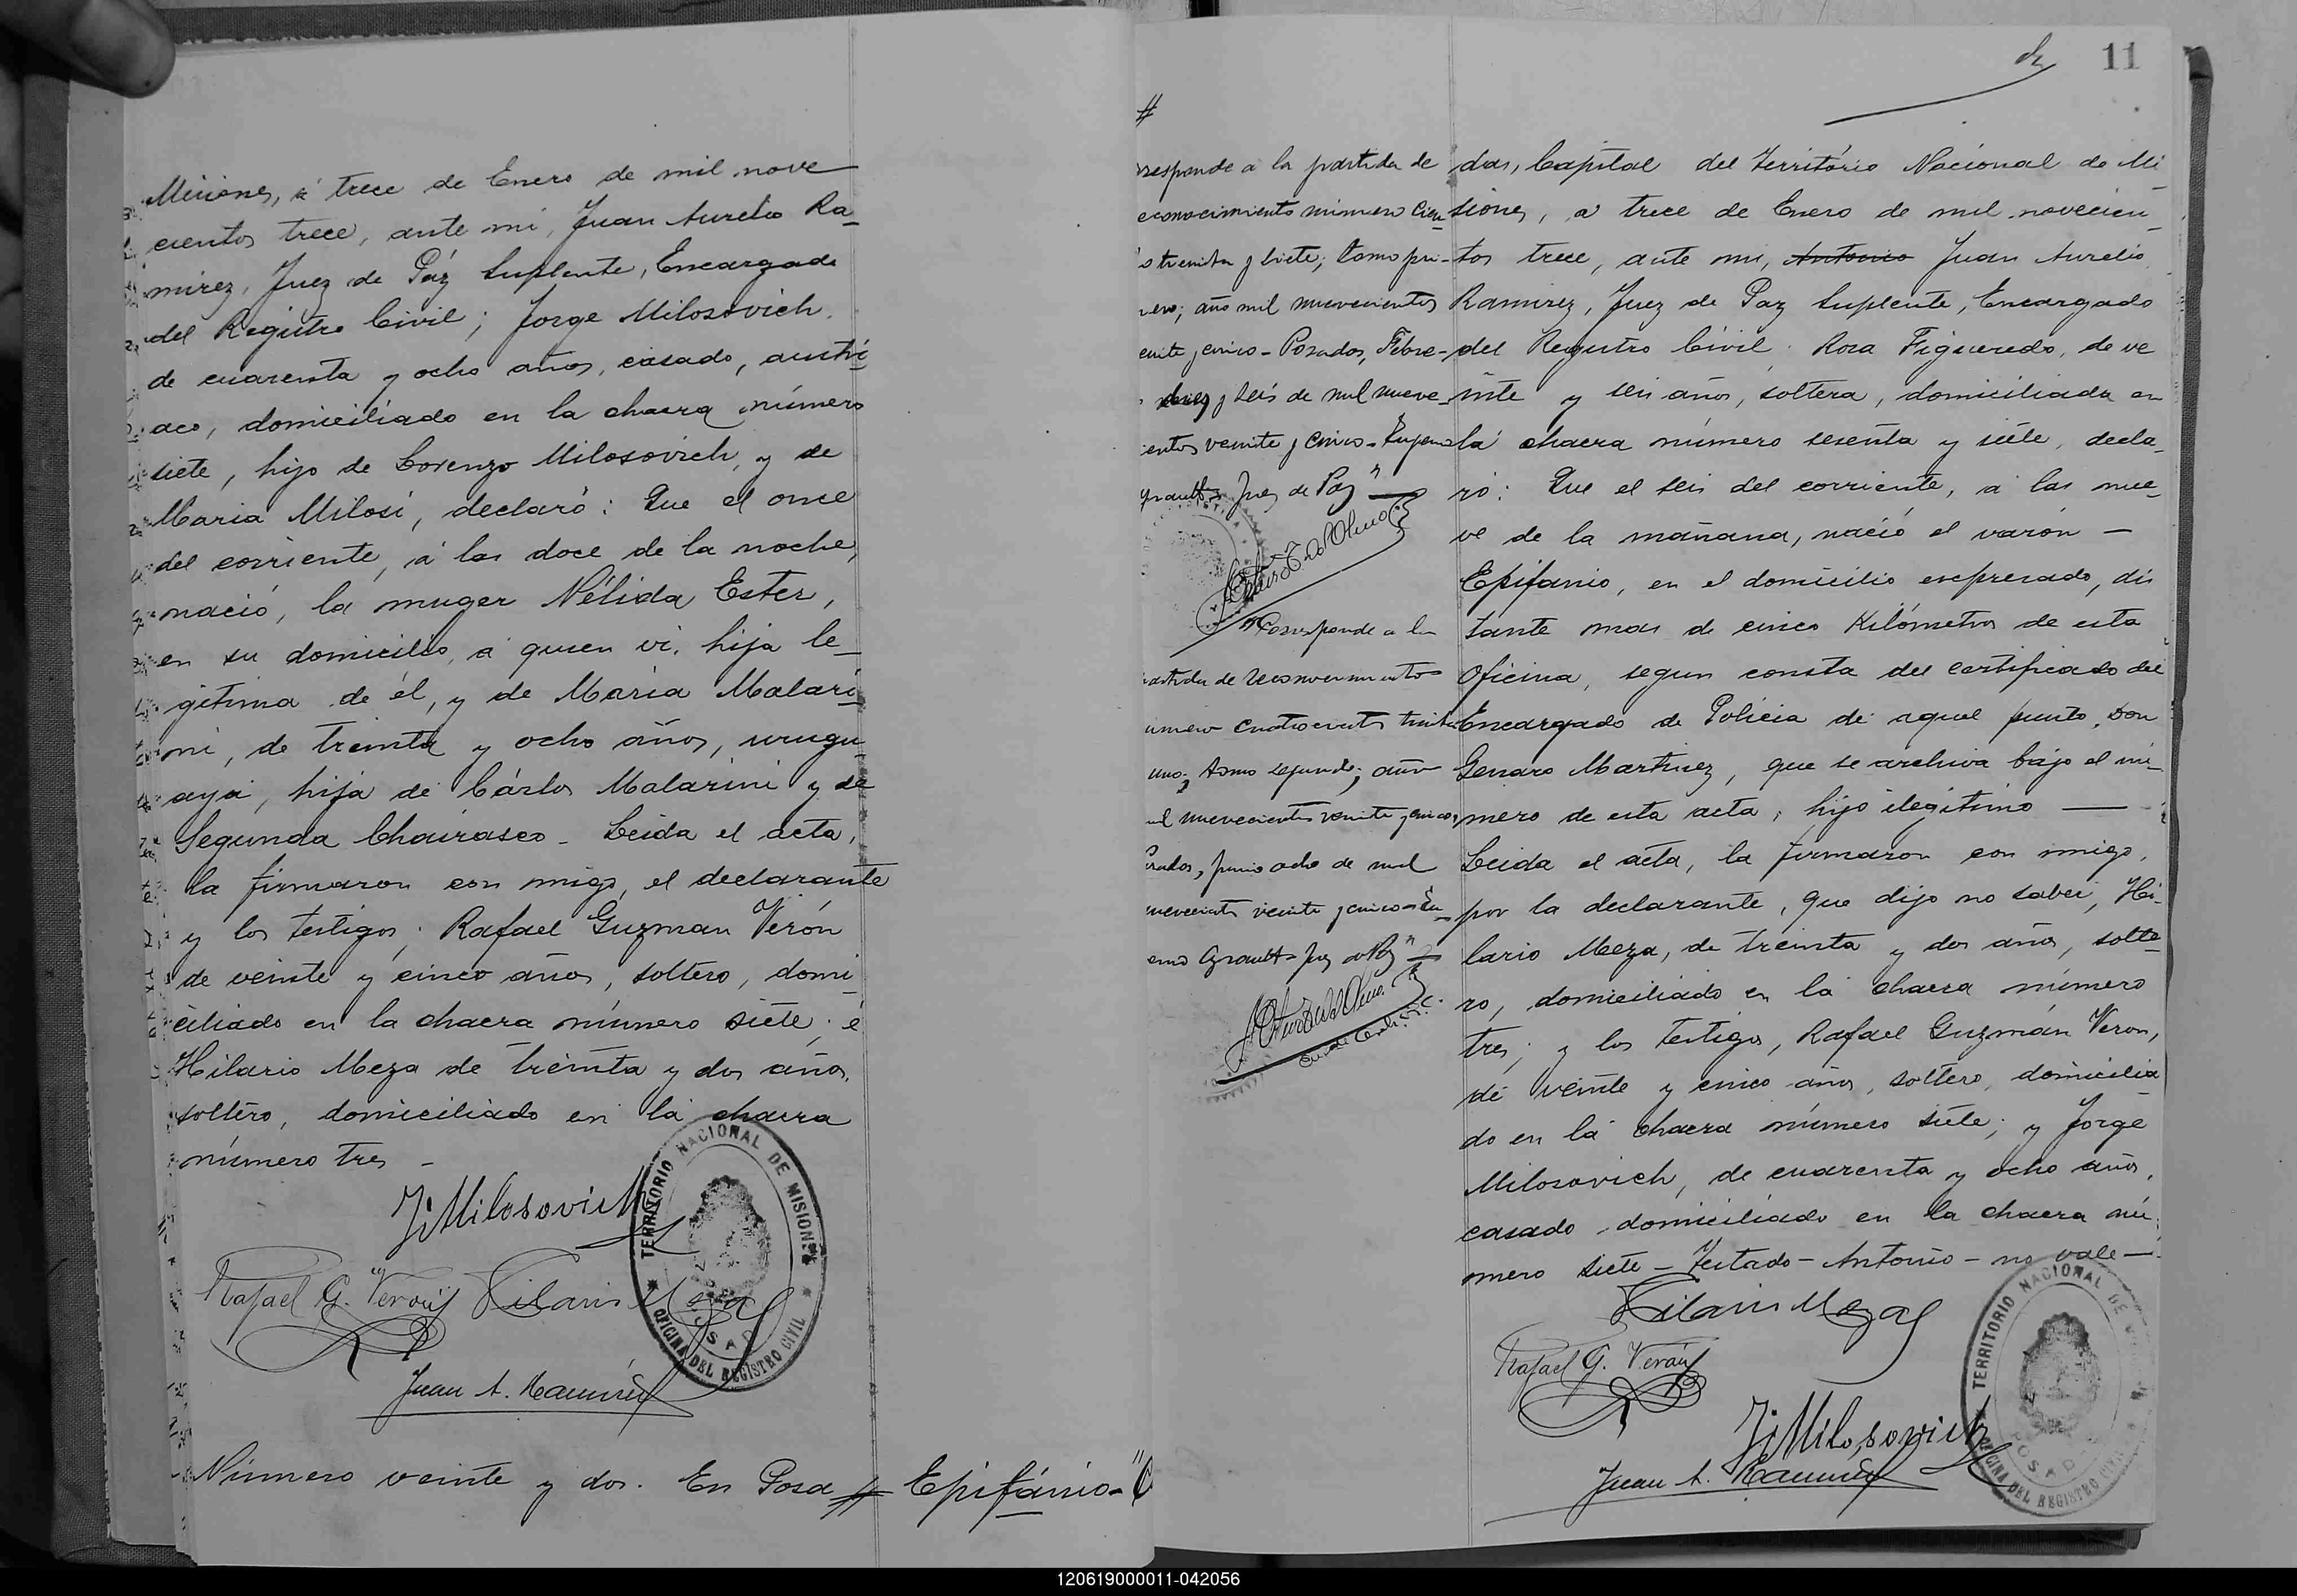 Misiones, á trece de Enero de mil nove
cientos trece, ante mi, Juan Aurelio Ra_
mirez, Juez de Páz Suplente, Encargado
del Registro Civil; Jorge Milosovich.
de cuarenta y ocho años, casado, austri
aco, domiciliado en la chacra número
siete, hijo de Lorenzo Milosovich, y de
Maria Milosi, declaró: Que el once
del corriente, á las doce de la noche,
nació, la muger Nélida Ester,
en su domicilio, á quien vi, hija le_
gitima de él, y de Maria Malari_
ni, de treinta y ocho años, urugu_
aya, hija de Cárlos Malarini y de
Segunda Chairasco - Leida el acta,
la firmaron con migo, el declarante
y los testigos; Rafael Guzman Verón
de veinte y cinco años, soltero, domi_
ciliado en la chacra número siete; é
Hilario Meza de treinta y dos años,
soltero, domiciliado en la chacra
número tres -
J. Milosovich
Rafael G. Verón Hilario Meza
Juan A. Ramirez
TERRITORIO NACIONAL DE MISIONES
POSADAS
OFICINA DEL REGISTRO CIVIL
Número veinte y dos. En Posa # Epifánio - "C
#
rresponde a la partida de
econocimiento número Cien_
to treinta y siete; tomo pri-
mero; año mil nuevecientos
veinte y cinco - Posadas, Febre-
diez y seis de mil nueve-
cientos veinte y cinco -
Juez de Paz"
"Corresponde a la
partida de reconocimiento
número cuatrocientos treinta
uno; tomo segundo; año
mil nuevecientos veinte y cinco
Posadas, junio ocho de mil
nuevecientos veinte y cinco -
Juez de Paz"
11
das, Capital del Território Nacional de Mi_
siones, á trece de Enero de mil novecien_
tos trece, ante mi, Antonio Juan Aurelio
Ramirez, Juez de Paz Suplente, Encargado
del Registro Civil. Rosa Figueredo, de ve
inte y seis años, soltera, domiciliada en
la chacra número sesenta y siete, decla_
ró: Que el seis del corriente, á las nue_
ve de la mañana, nació el varón -
Epifanio, en el domicilio expresado, dis
tante mas de cinco Kilómetros de esta
Oficina, segun consta del certificado del
Encargado de Policia de aquel punto, Don
Genaro Martinez, que se archiva bajo el nú_
mero de esta acta; hijo ilegitimo ——
Leida el acta, la firmaron con migo,
por la declarante, que dijo no saber, Hi-
lario Meza, de treinta y dos años, solte_
ro, domiciliado en la chacra número
tres; y los testigos, Rafael Guzmán Veron,
de veinte y cinco años, soltero, domicilia_
do en la chacra número siete; y Jorge
Milosovich, de cuarenta y ocho años,
casado domiciliado en la chacra nú_
mero siete - Testado - Antonio - no vale -
Hilario Meza
Rafael G. Verón
J. Milosovich
Juan A. Ramirez
TERRITORIO NACIONAL DE
POSADAS
OFICINA DEL REGISTRO CIVIL
120619000011-042056